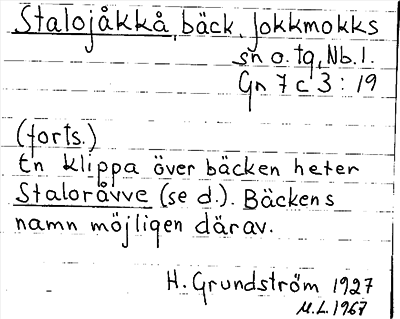 Stalojåkkå, bäck, Jokkmokks
sn o. tg, Nb. l.
Gn 7 c 3 : 19
(forts.)
En klippa över bäcken heter
Staloråvve (se d.). Bäckens
namn möjligen därav.
H. Grundström 1927
M.L. 1967